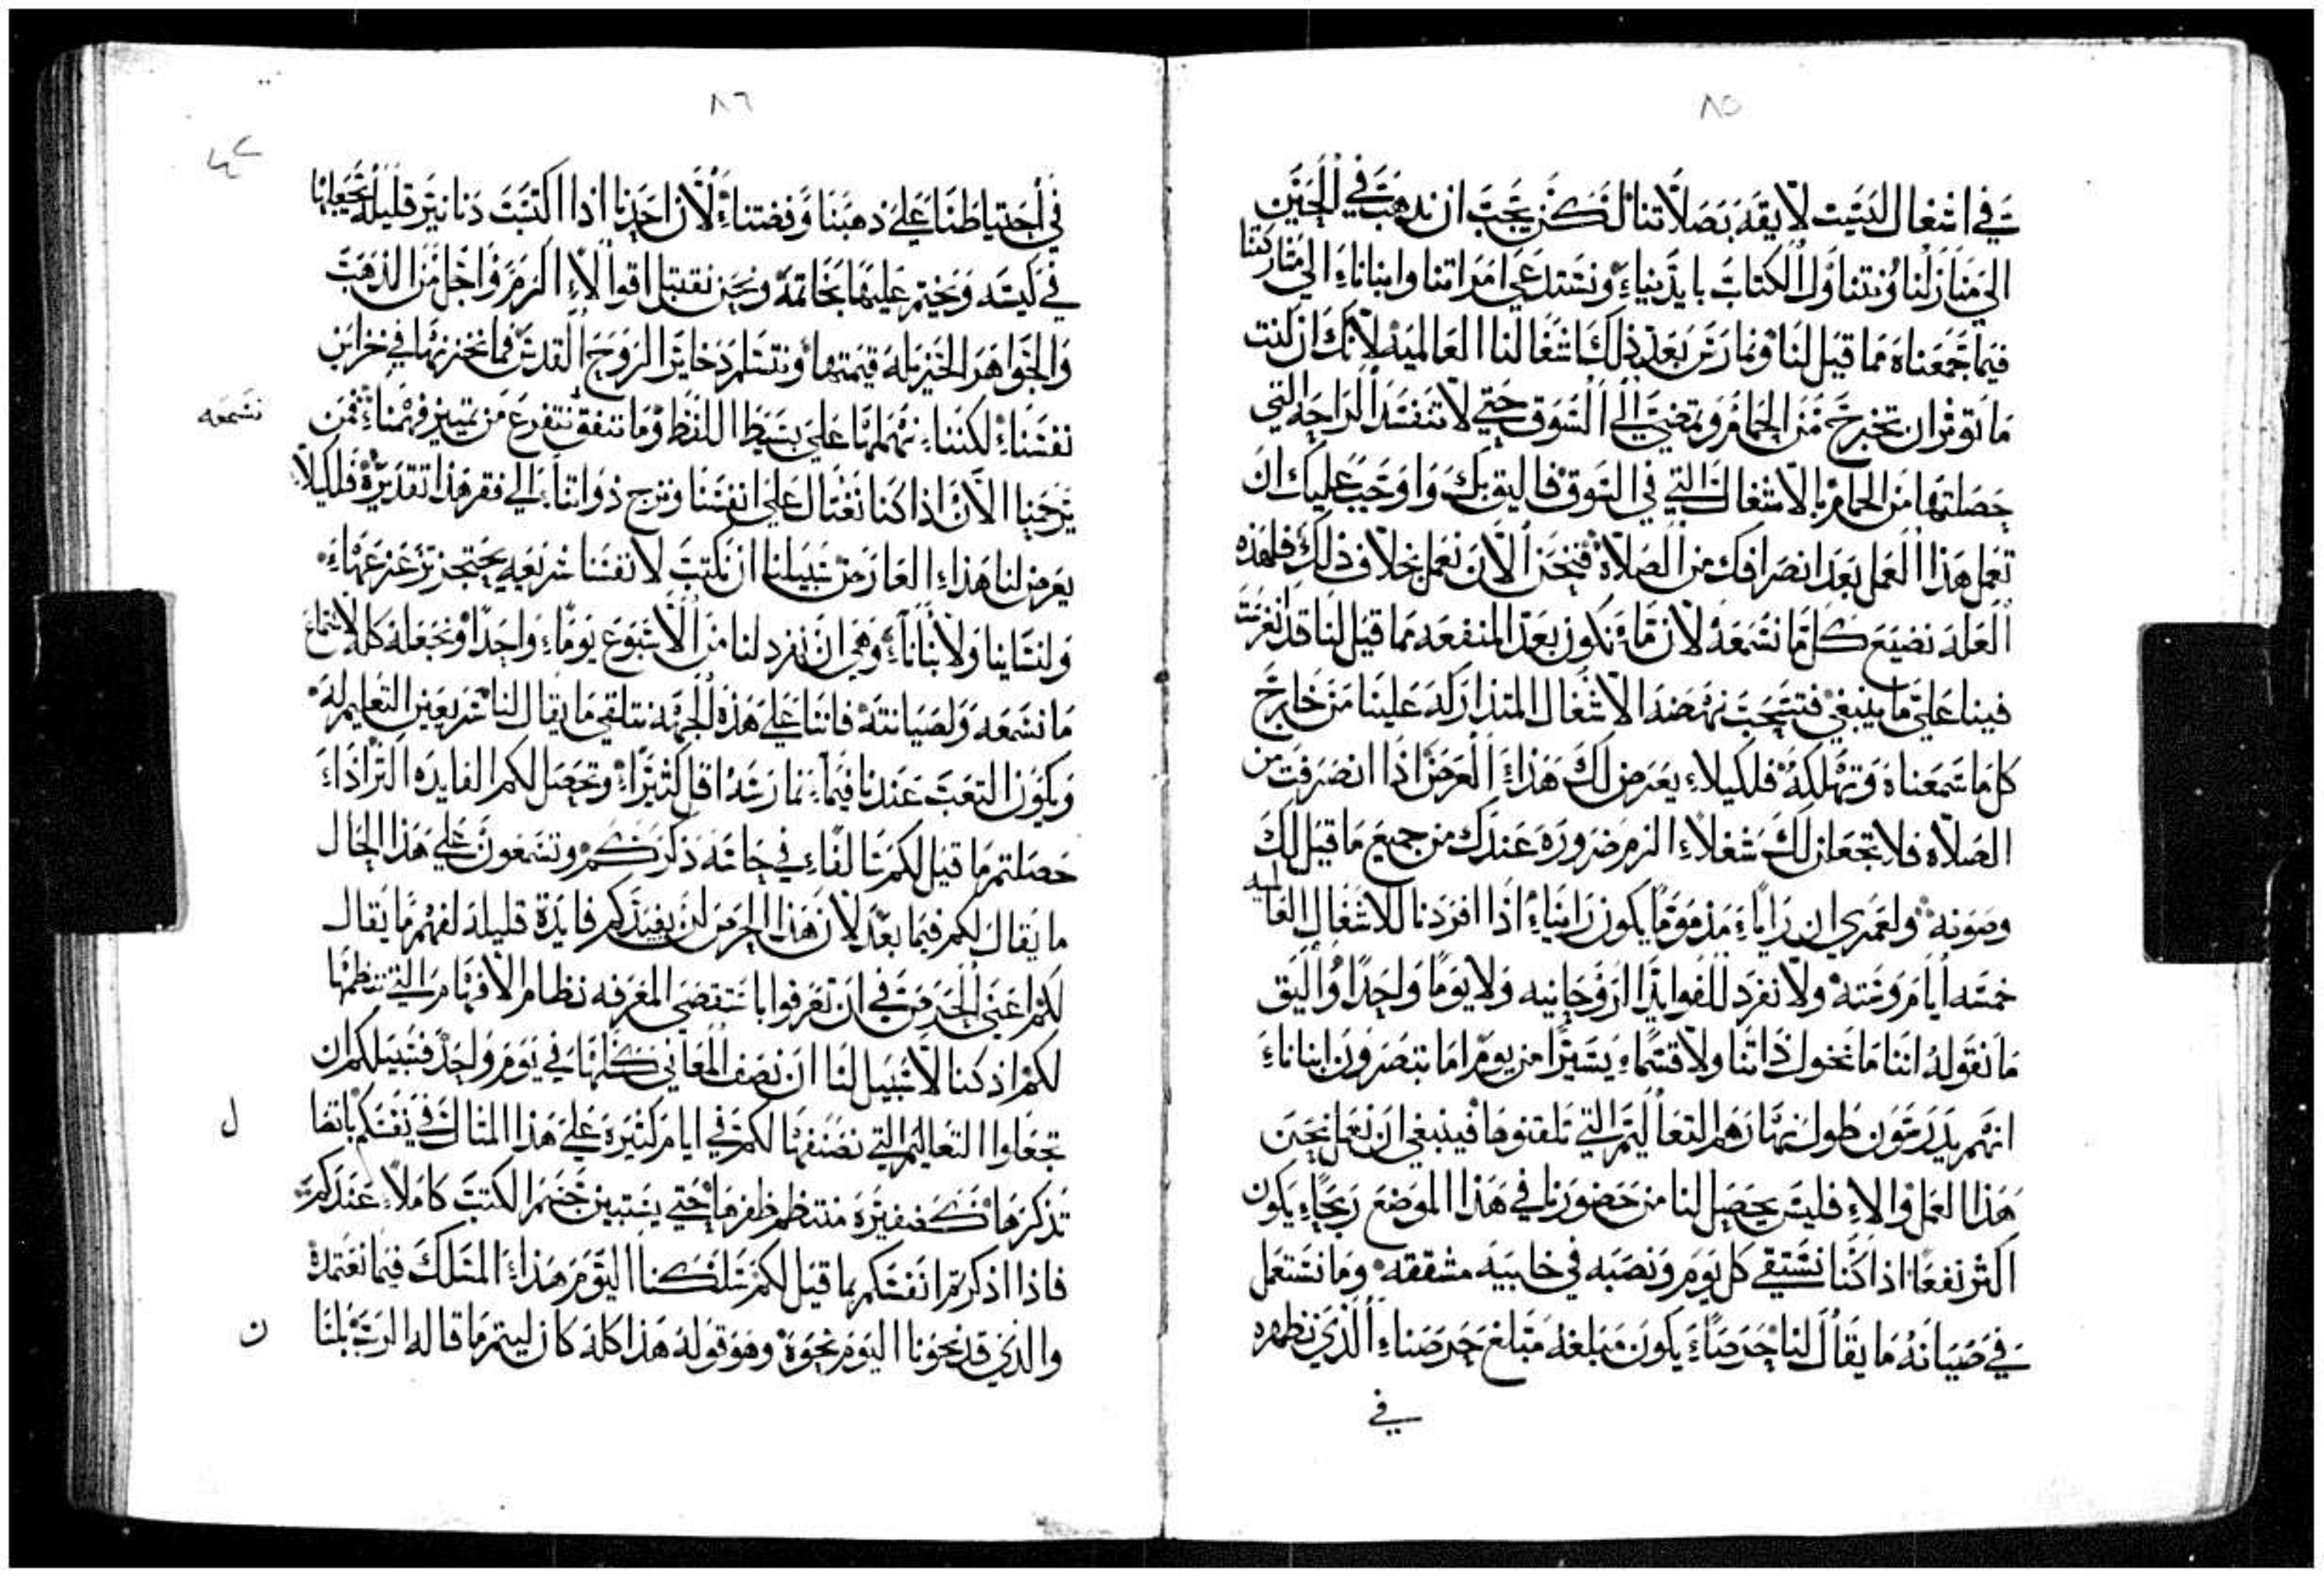 ٨٥
في اشغال ليست لايقه بصلاتنا لكن يجب ان نذهب في الحين
الي منازلنا ونتناول الكتاب بايدينا ونستدعي امراتنا وابنانا الي مشاركتنا
فيما جمعناه مما قيل لنا ونمارس بعد ذلك اشغالنا العالميه لانك ان كنت
ما توثر ان تخرج من الحمام وتمضي الي السوق حتي لا تنفسد الراحه التي
حصلتها من الحمام بالاشغال التي في السوق فاليق بك واوجب عليك ان
تعمل هذا العمل بعد انصرافك من الصلاة فنحن الان نعمل بخلاف ذلك فلهذه
العله نضيع كل ما نسمعه لان ما تكون بعد المنفعه مما قيل لنا قد انغرست
فينا علي ما ينبغي فتسحب نهضة الاشغال المتداركه علينا من خارج
كل ما سمعناه وتهلكه فلكيلا يعرض لك هذا العرض اذا انصرفت من
الصلاه فلا تجعلن لك شغلا الزم ضروره عندك من جميع ما قيل لك
وصونه ولعمري ان راما مذموما يكون راينا اذا افردنا للاشغال العالميه
خمسه ايام وسته ولا نفرد للفوايد الروحانيه ولا يوما واحدا واليق
ما نقوله اننا ما نخول ذاتنا ولا قسما يسيرا من يوم اما تبصرون ابنانا
انهم يدرسون طول نهارهم التعاليم التي تلقنوها فينبغي ان نعمل نحن
هذا العمل والا فليس يحصل لنا من حضورنا في هذا الموضع ربحا يكون
اكثر نفعا اذا كنا نستقي كل يوم ونصبه في خابيه مشققه وما نستعمل
في صيانه ما يقال لنا حرصا يكون مبلغه مبلغ حرصنا الذي نظهره
في
٨٦
في احتياطنا علي ذهبنا وفضتنا لان احدنا اذا اكتسب دنانير قليله يجعلها
في كيسه ويختم عليها بخاتمه ونحن نقتبل اقوالا اكرم واجل من الذهب
والجواهر الجزيله قيمتها ونتسلم ذخاير الروح القدس فما نخزنها في خزاين
نفسنا لكننا نهملها علي بسيط اللفظ وما تنفق نتفرع من تمييز فهمنا فمن
نسمعه
يرحمنا الان اذا كنا نغتال علي انفسنا ونزج ذواتنا الي فقر هذا تقديره فلكيلا
يعرض لنا هذا العارض سبيلنا ان نكتب لانفسنا شريعه يحتجز تزعزعها
ولنساينا ولابنانا وهي ان نفرد لنا من الاسبوع يوما واحدا ونجعله كله لاستماع
ما نسمعه ولصيانته فاننا علي هذه الجهه نتلقي ما يقال لنا شريعين التعليم له
ويكون التعب عندنا فيما نمارسه اقل كثيرا وتحصل لكم الفايده اكثر اذا
حصلتم ما قيل لكم سالفا في حاسه ذكركم وتسمعون علي هذا الحال
ما يقال لكم فيما بعد لان هذا الحرص لن يفيدكم فايدة قليله لفهم ما يقال
لكم اعني الحرص في ان تعرفوا باستقصي المعرفه نظام الافهام التي ننظمها
لكم اذ كنا لا سبيل لنا ان نصف المعاني كلها في يوم واحد فسبيلكم ان
تجعلوا التعاليم التي نصنفها لكم في ايام كثيره علي هذا المثال في نفسكم باتصال
تذكرها كضفيره منتظم ظفرها حتي يستبين جسم الكتب كاملا عندكم
فاذا اذكرتم انفسكم بما قيل لكم سلكنا اليوم هذا المسلك فيما نعتمده
والذي قد نحونا اليوم نحوه وهو قوله هذا كله كان ليتم ما قاله الرب بلسان